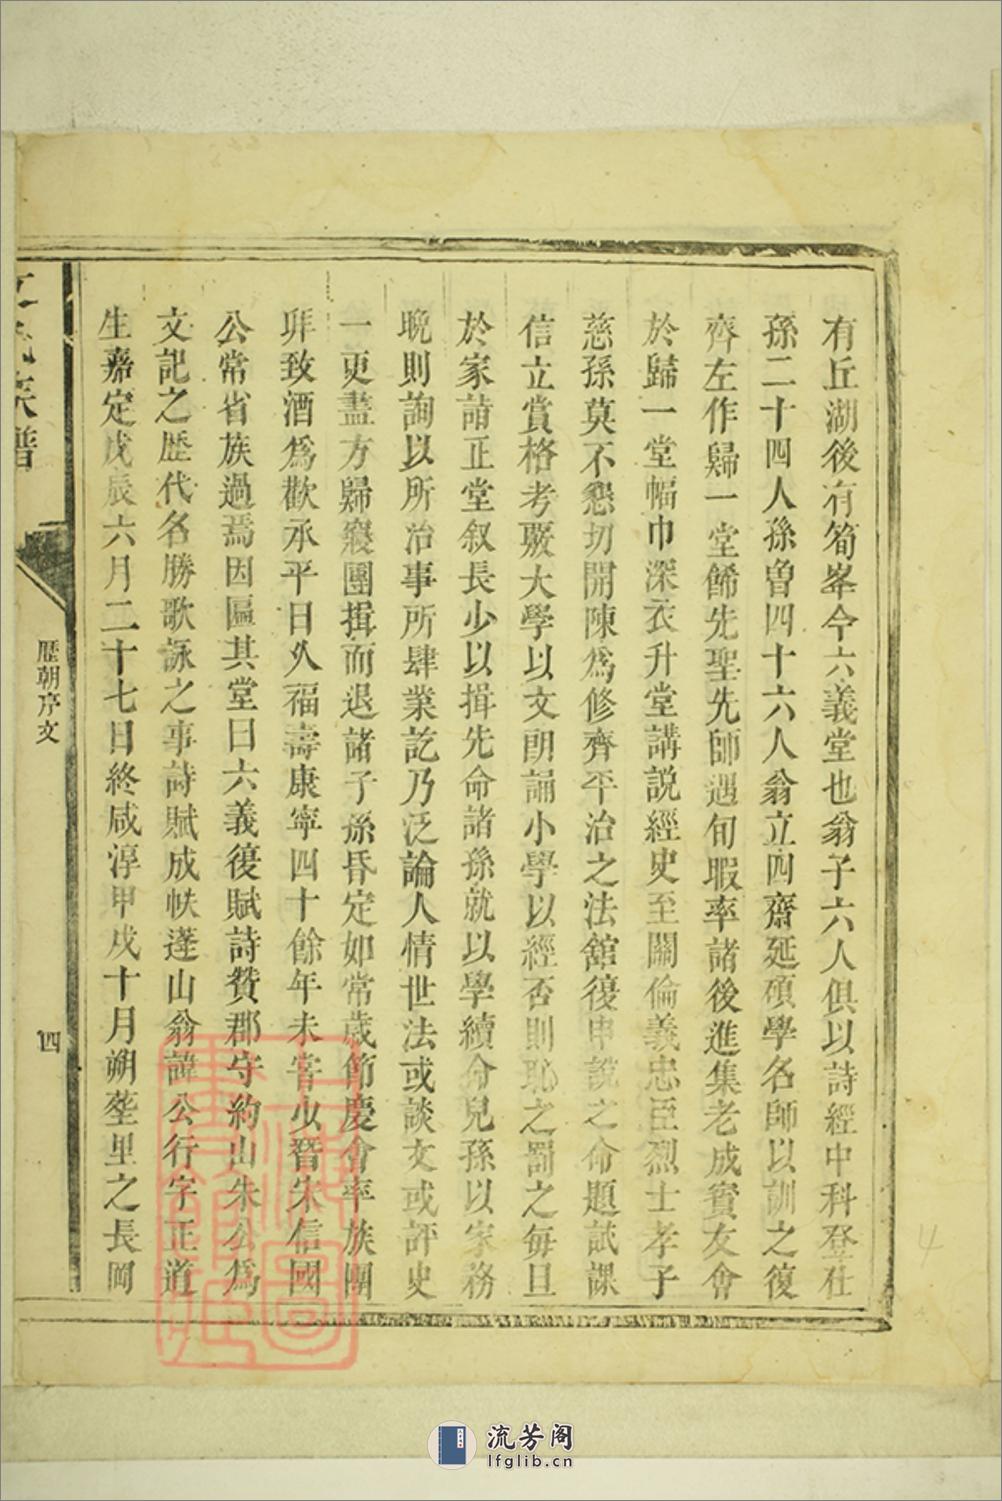 有丘湖後有筍峯今六義堂也翁子六人俱以詩經中科登仕
孫二十四人孫曾四十六人翁立四齋延碩學名師以訓之復
齊左作歸一堂餙先聖先師遇旬暇率諸後進集老成賓友會
於歸一堂幅巾深衣升堂講説經史至關倫義忠臣烈士孝子
慈孫莫不懇切開陳為修齊平治之法舘復申說之命題試課
信立賞格考覈大學以文朗誦小學以經否則恥之罰之每旦
於家請正堂叙長少以揖先命諸孫就以學續命兒孫以家務
晚則詢以所治事所肆業訖乃泛論人情世法或談文或評史
一更盡方歸寢團揖而退諸子孫昏定如常歲節慶會率族團
拜致酒為歡承平日久福壽康寧四十餘年未嘗少替宋信國
公常省族過焉因區其堂曰六義復賦詩贊郡守約山朱公為
文記之歷代名勝歌詠之事詩賦成帙蓬山翁諱公行字正道
生嘉定戊辰六月二十七日終咸淳甲戌十月朔塟里之長岡
族譜
歷朝序文
四
4
流芳阁
lfglib.cn